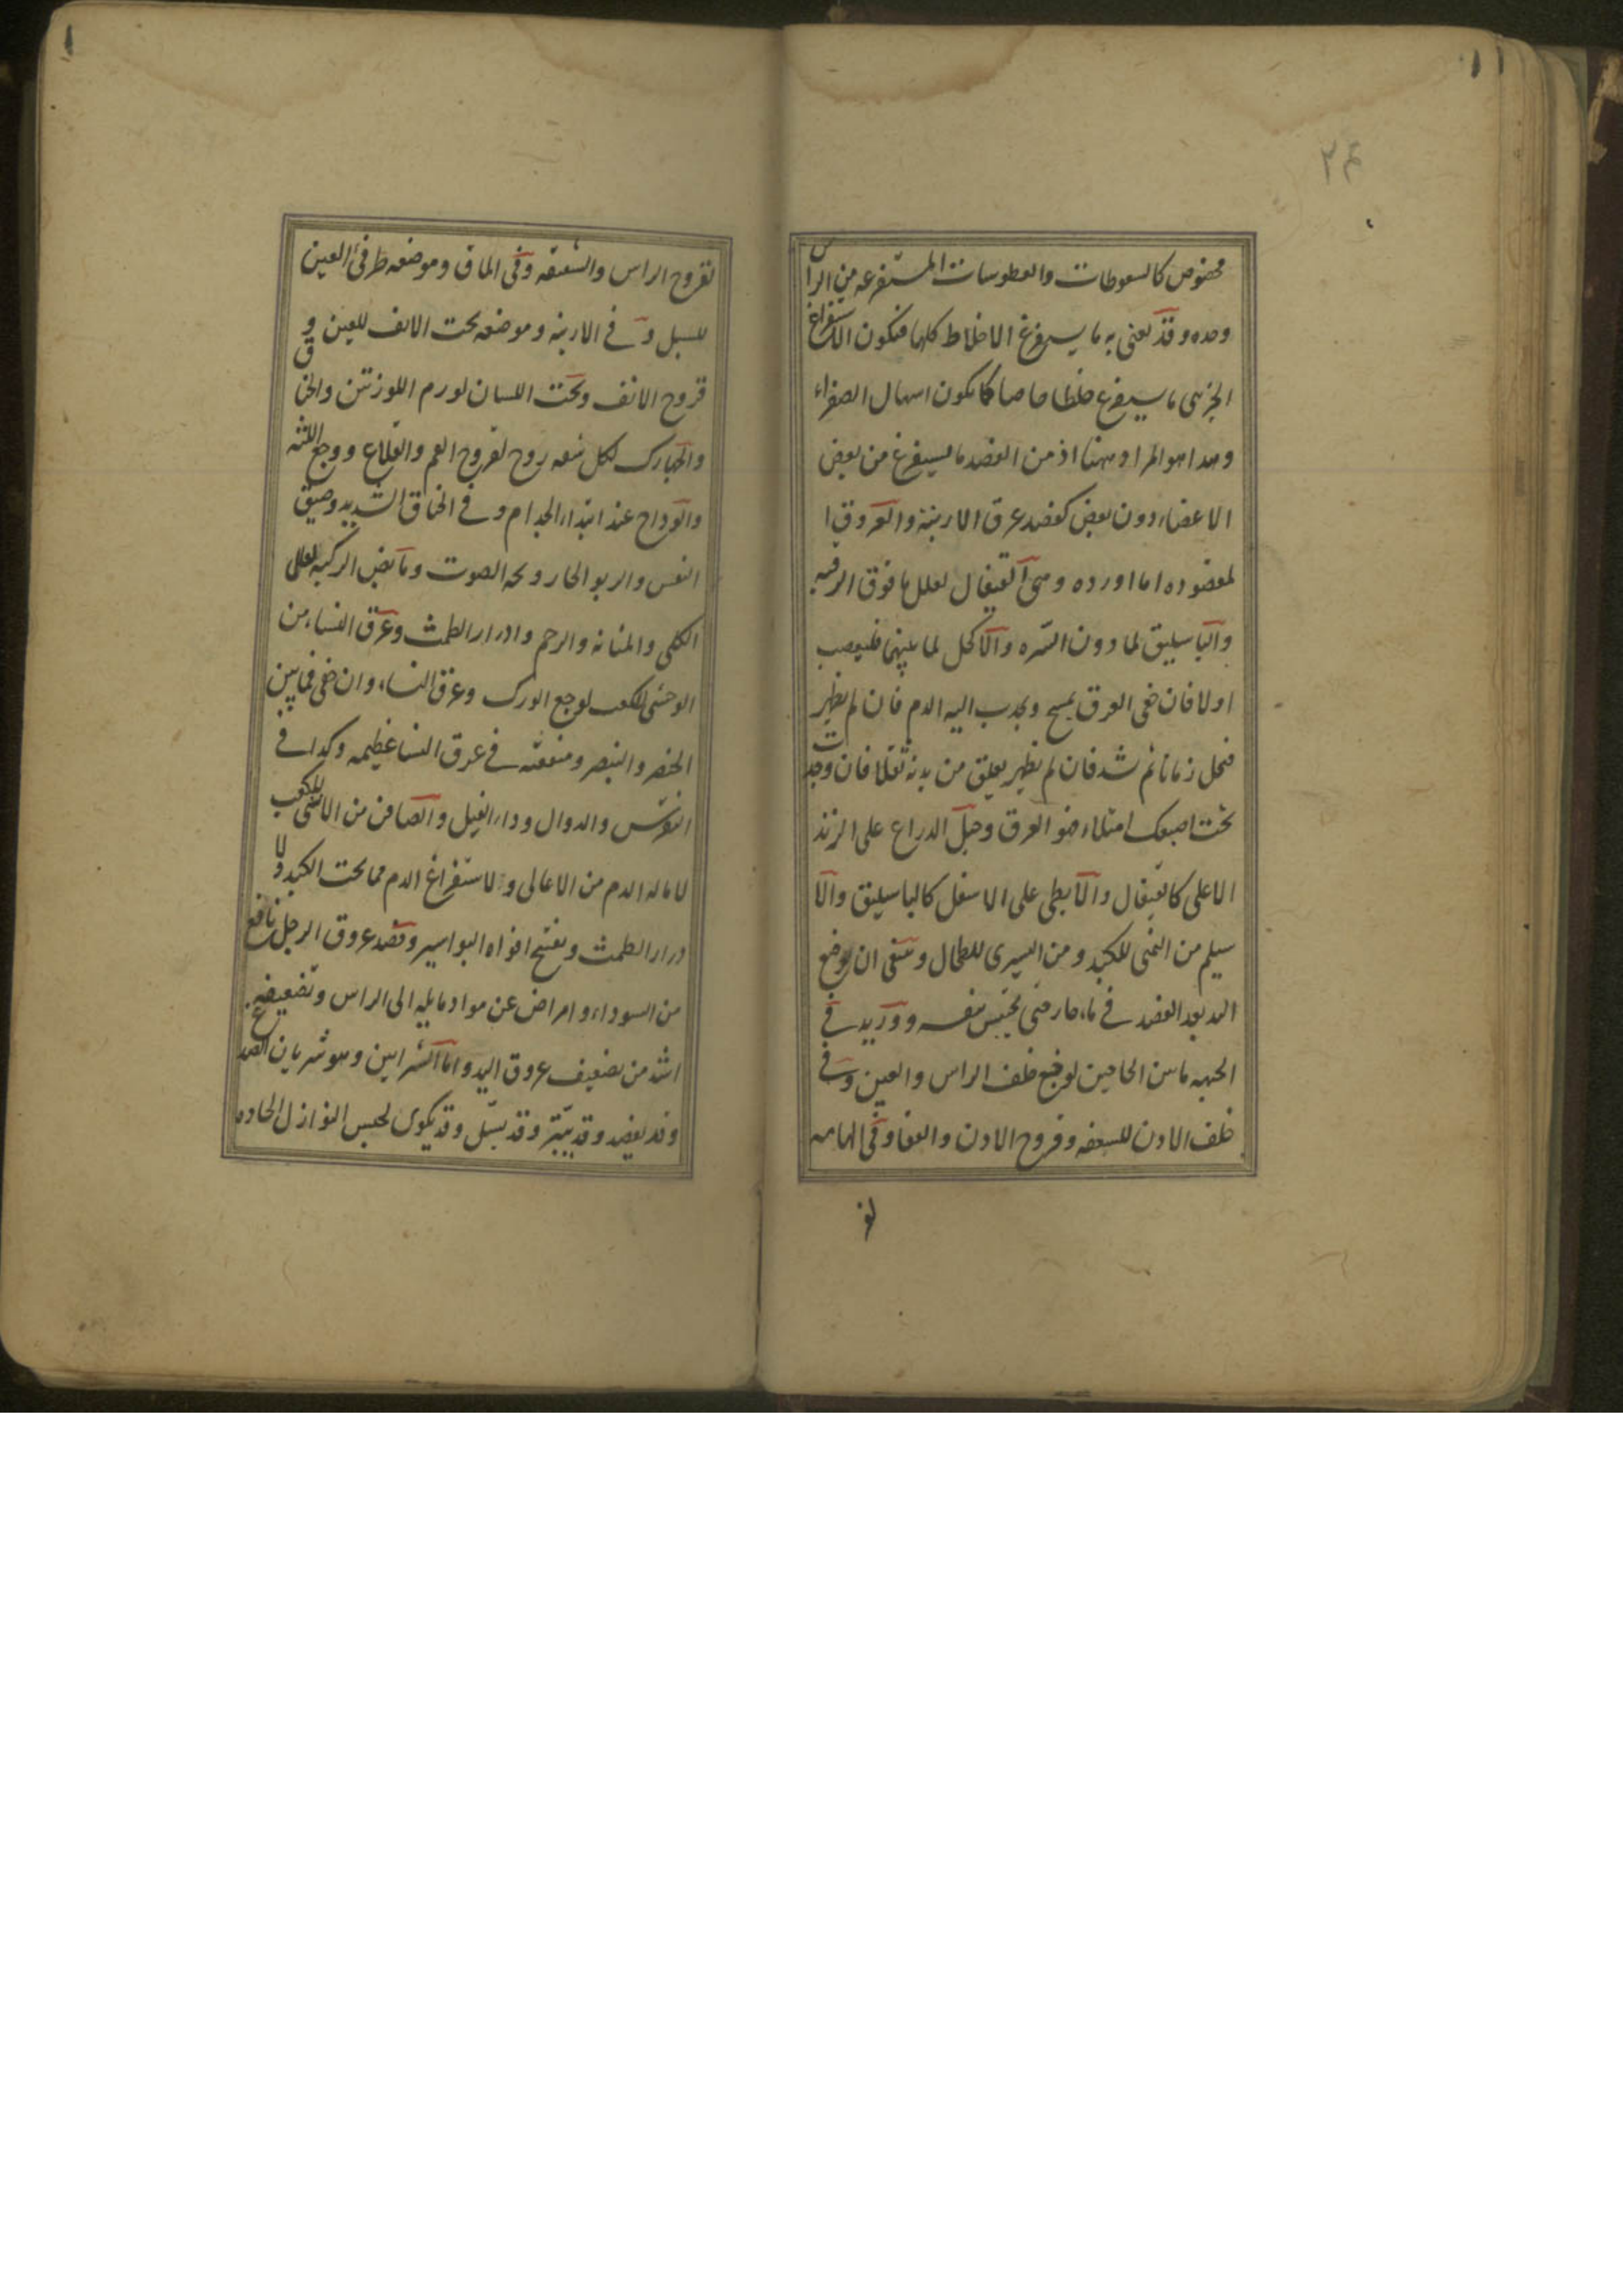 ٢٤
مخصوص كالسعوطات والعطوسات المستفرغه من الراس
وحده وقد يعنى به ما يستفرغ الاخلاط كلها فيكون الاستفراغ
الجزيى ما يستفرغ خلطا خاصا كما يكون اسهال الصفراء
وهدا هو المراد ههنا اذ من الفصد ما يستفرغ من بعض
الاعضاء دون بعض كفصد عرق الارنبة والعروق ا
لمفصوده اما اورده وهى القيفال لعلل ما فوق الرقبه
والباسليق لما دون السره والاكحل لما بينهما فليعصب
اولا فان خفى العرق يمسح ويجدب اليه الدم فان لم يظهر
فيحل زمانا ثم شد فان لم يظهر يعلق من يده ثقلا فان وجدت
تحت اصبعك امتلاء فهو العرق وحبل الدراع على الزند
الاعلى كالقيفال والابطى على الاسفل كالباسليق والا
سيلم من اليمنى للكبد ومن اليسرى للطحال وينبغى ان يوضع
اليد بعد الفصد فى ماء حار حتى يحتبس بنفسه ووريد فى
الجبهه مابين الحاجبين لوجع خلف الراس والعين وفى
خلف الادن للسعفه وقروح الادن والقفا وفى الهامه
لقر
لقروح الراس والشقيقه وفى الماق وموضعه طرفى العين
للسبل وفى الارنبة وموضعه تحت الانف للعين و
قروح الانف وتحت اللسان لورم اللوزتين والخناق
والجهارك لكل شفه زوج لقروح الفم والقلاع ووجع اللثه
والوداج عند ابتداء الجدام وفى الخناق الشديد وضيق
النفس والربو الحار وبحه الصوت ومابض الركبه لعلل
الكلى والمثانه والرحم وادرار الطمث وعرق النساء من
الوحشى للكعب لوجع الورك وعرق النساء وان خفى فما بين
الخنصر والبنصر ومنفعته فى عرق النسا عظيمه وكدا فى
النقرس والدوالى وداء الفيل والصافن من الانسى للكعب
لاماله الدم من الاعالى ولاستفراغ الدم مما تحت الكبد ولا
درار الطمث وبفتح افواه البواسير وفصد عروق الرجل نافع
من السوداء وامراض عن مواد مايله الى الراس وتضعيفه
اشد من تضعيف عروق اليد واما الشرايين وهو شريان الصدغ
وقد يفصد وقد يبتر وقد يسل وقد يكوى لحبس النوازل الحاده